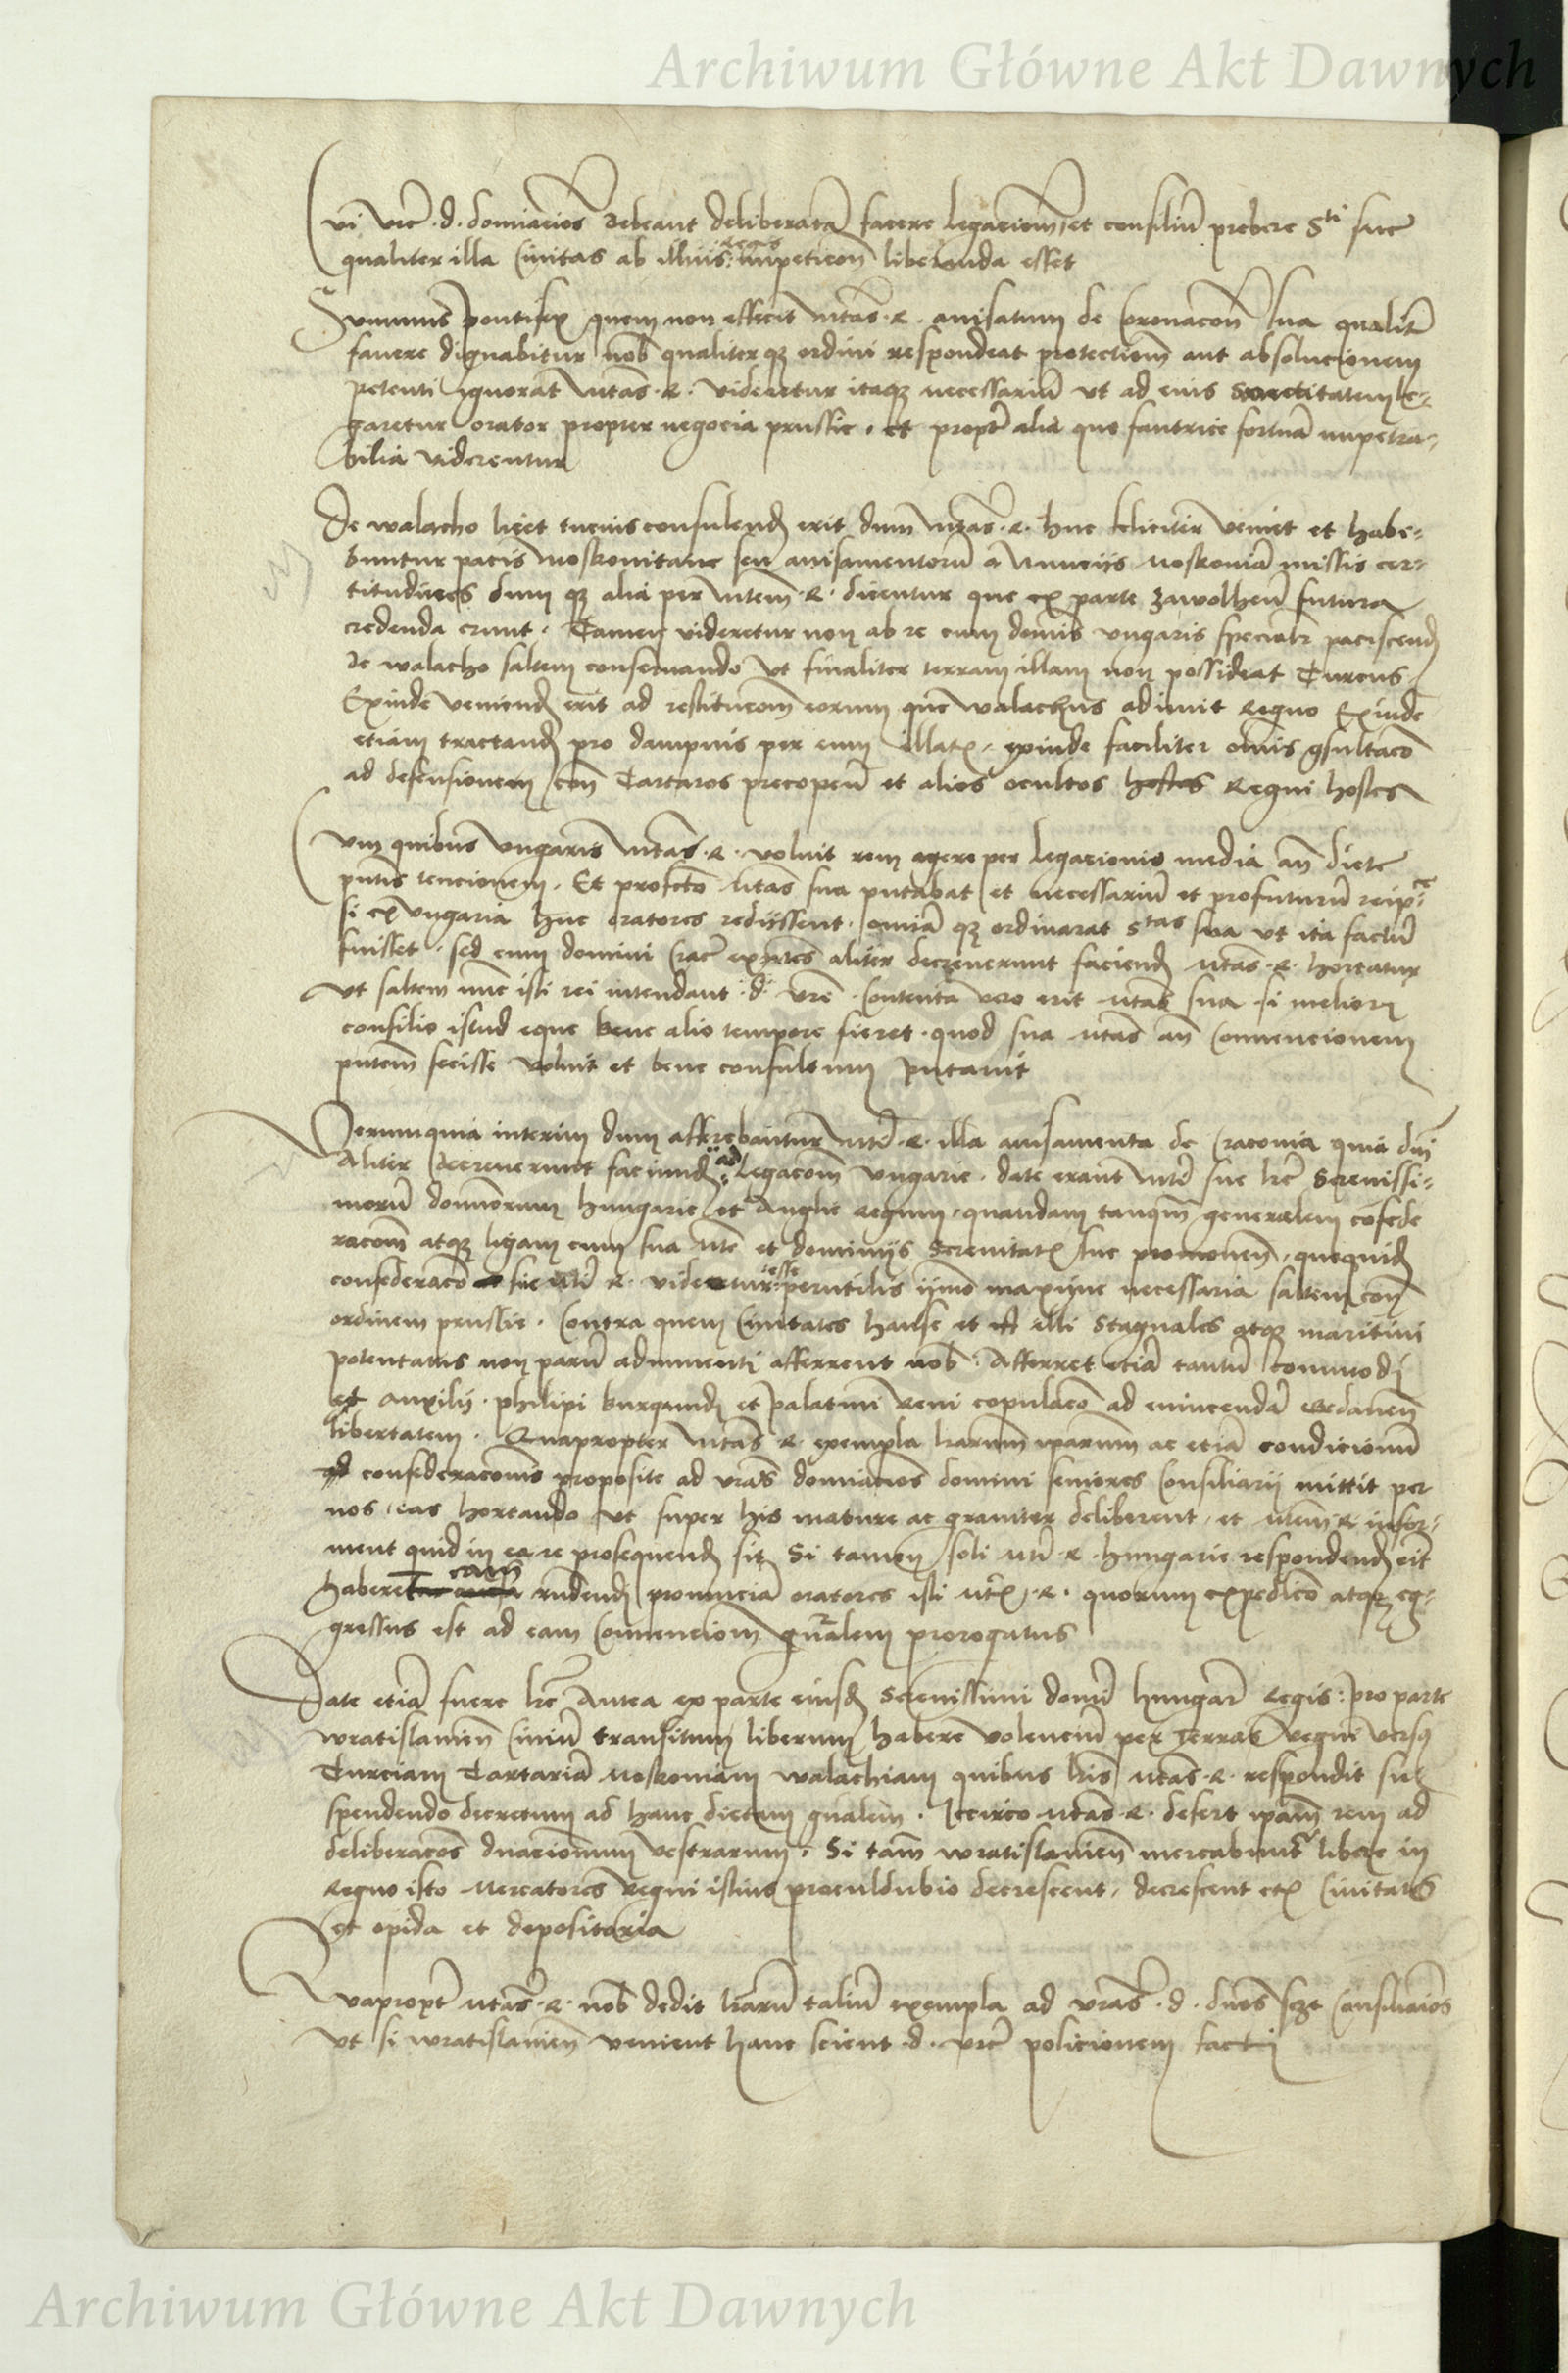 Archiwum Główne Akt Dawnych
debeant deliberatam facere legacionem et consilium prebere Sti sue
qualiter illa Civitas ab illius impeticon liberanda esset
Summus pontifex quem non effecit mtas R. avisatum de Coronacon sua qualiter
favere dignabitur nob qualiter qz ordini respondeat protectionem aut absolucionem
petenti Ignorat mtas R. videretur itaqz necessariu ut ad eius sanctitatem le-
garetur orator propter negocia prussie et propter alia que fautrice fortuna impetra-
bilia viderentur
De walacho licet tucius consulend erit dum mtas R. huc feliciter veniet et habe-
buntur pacis moskovitane seu avisamentoru a Nunciis moskoviam missis cer-
titudines dum qz alia per mtem R. dicentur que ex parte zawolhen futura
credenda erunt. Tamen videretur non ab re cum domis ungaris specialr paciscend
de walacho saltem conservando ut finaliter terram illam non possideat Turcus
Exinde veniend erit ad restitucom eorum que walachus adimit Regno Exinde
etiam tractand pro dampnis per eum illatis exinde faciliter omnis consultaco
ad defensionem con Tartaros precopen et alios ocultos hostes Regni hostes
Cum quibus Ungaris mtas R. voluit rem agere per legacionis media an diete
pntis tencionem. Et profecto mtas sua putabat et necessariu et profuturu reip ce
si ex ungaria huc oratores rediissent omia qz ordinarat Stas sua ut ita factu
fuisset sed cum domini Crac exntes aliter decreverunt faciend mtas R. hortatur
ut saltem nunc isti rei intendant d vre Contenta vero erit mtas sua si meliori
consilio istud eque bene alio tempore fieret quod sua mtas an Convencionem
pntem fecisse voluit et bene consultum putavit
Verumquia interim dum afferebantur mti R. illa avisamenta de Cracovia quia dni
Aliter decreverunt faciund ad legacom Ungarie date erant mti sue lre Serenissi-
morum dominorum hungarie et Anglie Regum quandam tanqm generalem cofede
racom atqz ligam cum sua mte et dominiis Serenitatis sue promoven quequid
confederaco sic mti R. videretur esse perutilis ymo maxime necessaria saltem con
ordinem prussie. Contra quem Civitates hanse et illi stagnales atqz maritimi
potentatus non paru adiumenti afferrent nob. Afferret etia tantu commodi
et auxilii philipi burgundi et palatini Reni copulaco ad evincenda Gedanen
libertatem. Quapropter mtas R. exempla lrarum iparum ac etia condicionum
confederaconis proposite ad vras domiacios domini seniores Consiliarii mittit per
nos eas hortando ut super his mature ac graviter deliberent et mtem R. infor-
ment quid in ea re prosequend sit Si tamen soli mti R. hungarie respondend erit
haberet eam rndendi provincia oratores isti mtis R. quorum expedico atqz eg-
gressus est ad eam Convencionem gnralem prorogatus
Date etia fuere lre Antea ex parte eiusd Serenissimi domi hungar Regis pro parte
wratislavien Civiu transitum liberum habere volenciu per Terras Regni versus
Turciam Tartaria moskoviam walachiam quibus lris mtas R. respondit su
spendendo decretum ad hanc dietam gnalem. Iccirco mtas R. defert ipam rem ad
deliberacos dnacionum vestrarum. Si tam wratislavien mercabunt libere in
Regno isto Mercatores Regni istius proculdubio decrescent decrescent etz Civitates
et opida et depositoria
Quapropt mtas R. nob dedit lraru taliu exempla ad vras d. dnos Consiliarios
ut si wratislavien venient hanc scient d. vre policionem facti
Archiwum Główne Akt Dawnych